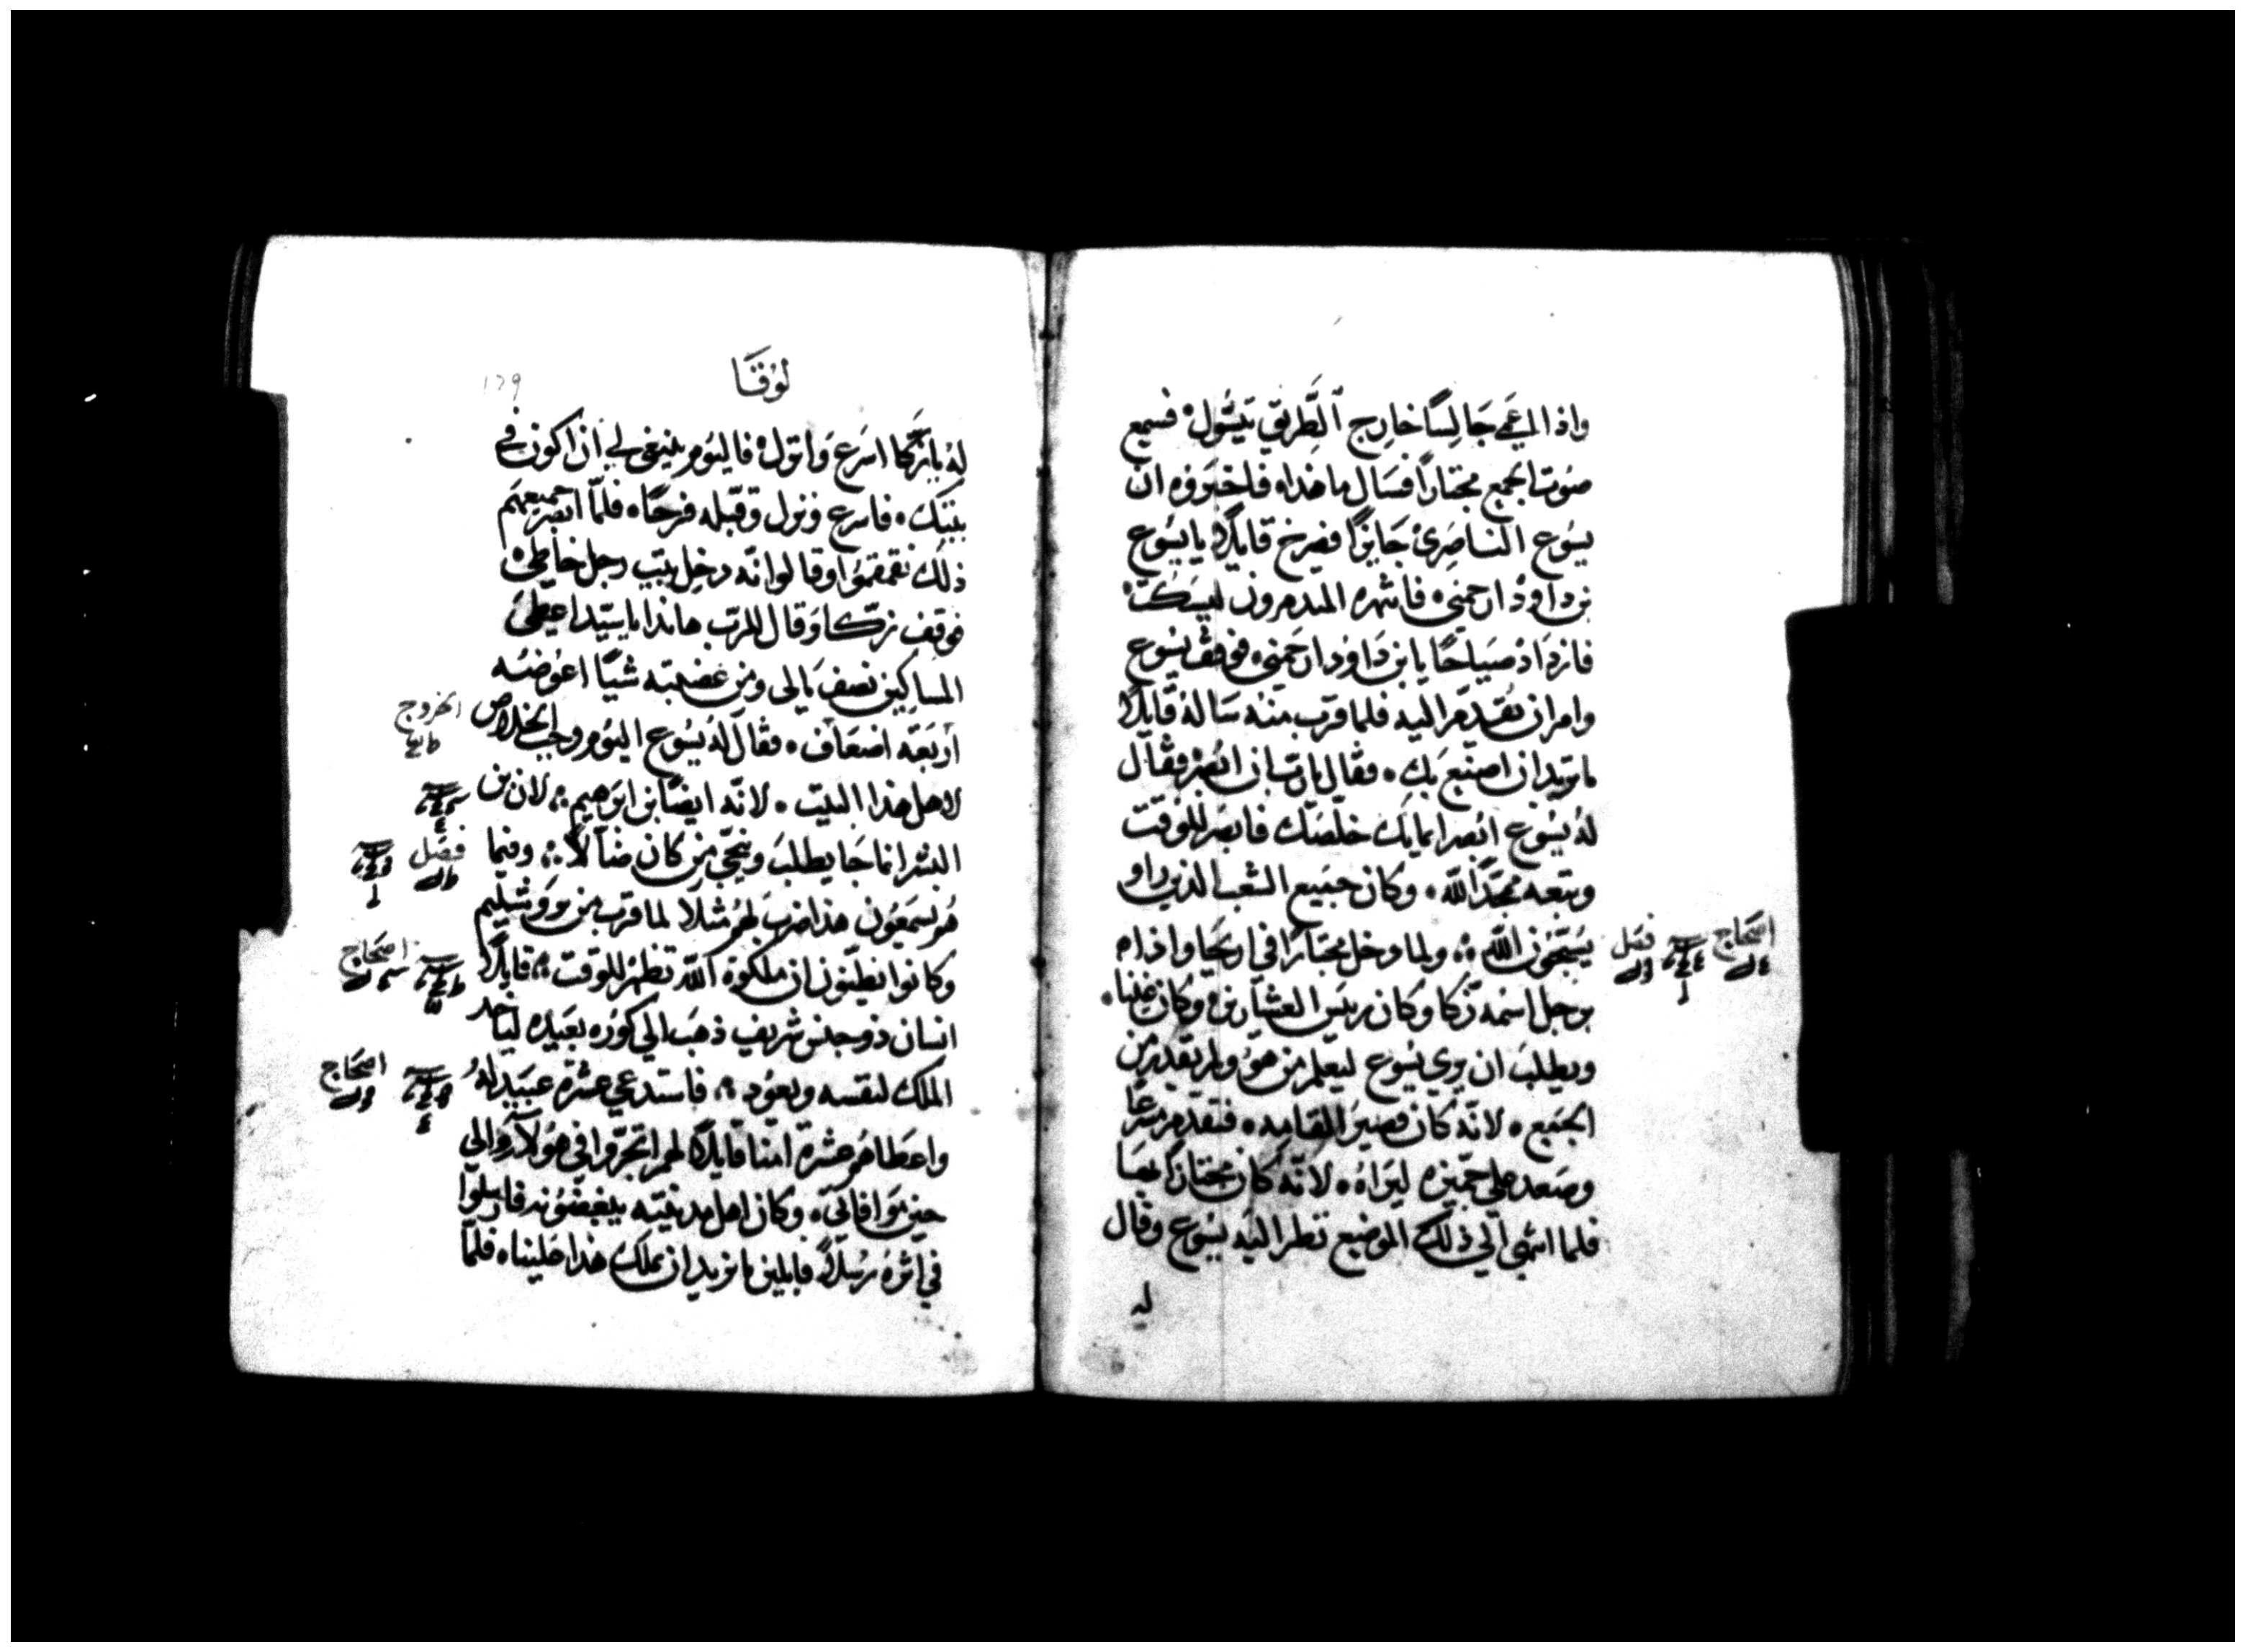 واذا اعمي جَالِسًا خارج الطَّريق يتسَّول فسمع
صوت الجمع مجتازًا فسال ما هذا فاخبروه ان
يسُوع الناصِريْ جَايزًا فصرخ قايلًا يا يسُوع
بن داوودُ ارحمني فانتهره المتقدمرون ليسكت
فازدَادْ صيَاحًا يا بن دَاوودُ ارحَمني فوقف يسُوع
وامر ان يقدم اليه فلما قرب منه سَاله قَايلًا
ما تريد ان اصنع بك فقال يا رب ان ابصر فقال
لهُ يسُوع ابصر ايمانك خلّصَك فابصر للوقت
وتبعه ممجّدًا الله وكان جميع الشعب الذين راو
يسَبّحُون الله ولما دخل مجتازًا في اريحَا واذاه
اصحاح
فصل
برجل اسمه زكا وكان ريس العشارين وكان غنيا
ويطلبَ ان يري يسُوع ليعلم من هو ولم يقدر من
الجمَع لانّه كان قصيرَ القامه فتقدم مسرعًا
وصَعد علي جمّيزه ليَراهُ لانّه كان مجتازًا بها
فلما انتهي الي ذلك الموضع نظر اليه يسُوع وقال
له
لوُقَا
139
لهُ يا زكا اسرَع وَانزل فاليَوم ينبغي لي ان اكون في
بيتك فاسرع ونزل وقبّله فرحًا فلمّا ابصر جميعهم
ذلك تقمقمُوا وقالوا انّه دخل بيت رجل خاطئ
فوقف زكّا وَقال للرّب هانذا يا سيّد اعطي
المسَاكين نصف مالي ومن غصبته شيًا اعوضه
اربَعَة اضعَاف فقال لهُ يسُوع اليوم وجب الخلاص
الخروج
لاهل هذا البيت لانّه ايضًا بن ابرَهيم لان بن
البشر انما جَا يطلبَ وينجّي من كان ضالًا وفيما
فصل
هُم يسمَعُون هذا ضربَ لهُم مثلا لما قرب من يروشليم
وكانوا يظنّون ان ملكوة الله تظهَر للوقت قايلًا
اصحاح
انسان ذو جنس شريف ذهَبَ الي كورَه بعَيده ليَاخد
الملك لنفسه ويعوُد فاستدعي عشرة عبَيد لهُ
اصحاح
واعطاهُم عشرة امنا قايلًا لهم اتجرّوا في هولاء الي
حين موافاتي وكان اهل مدينته يبغضوُنه فارسلوا
في اثرهُ رسُلًا قايلين ما نريد ان يملك هذا علينا فلمّا